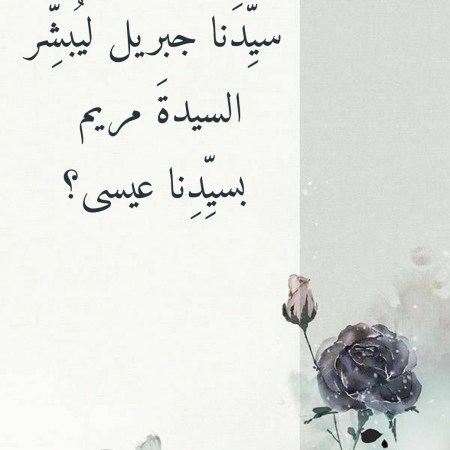 سيِّدَنا جبريل ليُبشِّر
السيدةَ مريم
بسيِّدِنا عيسى؟